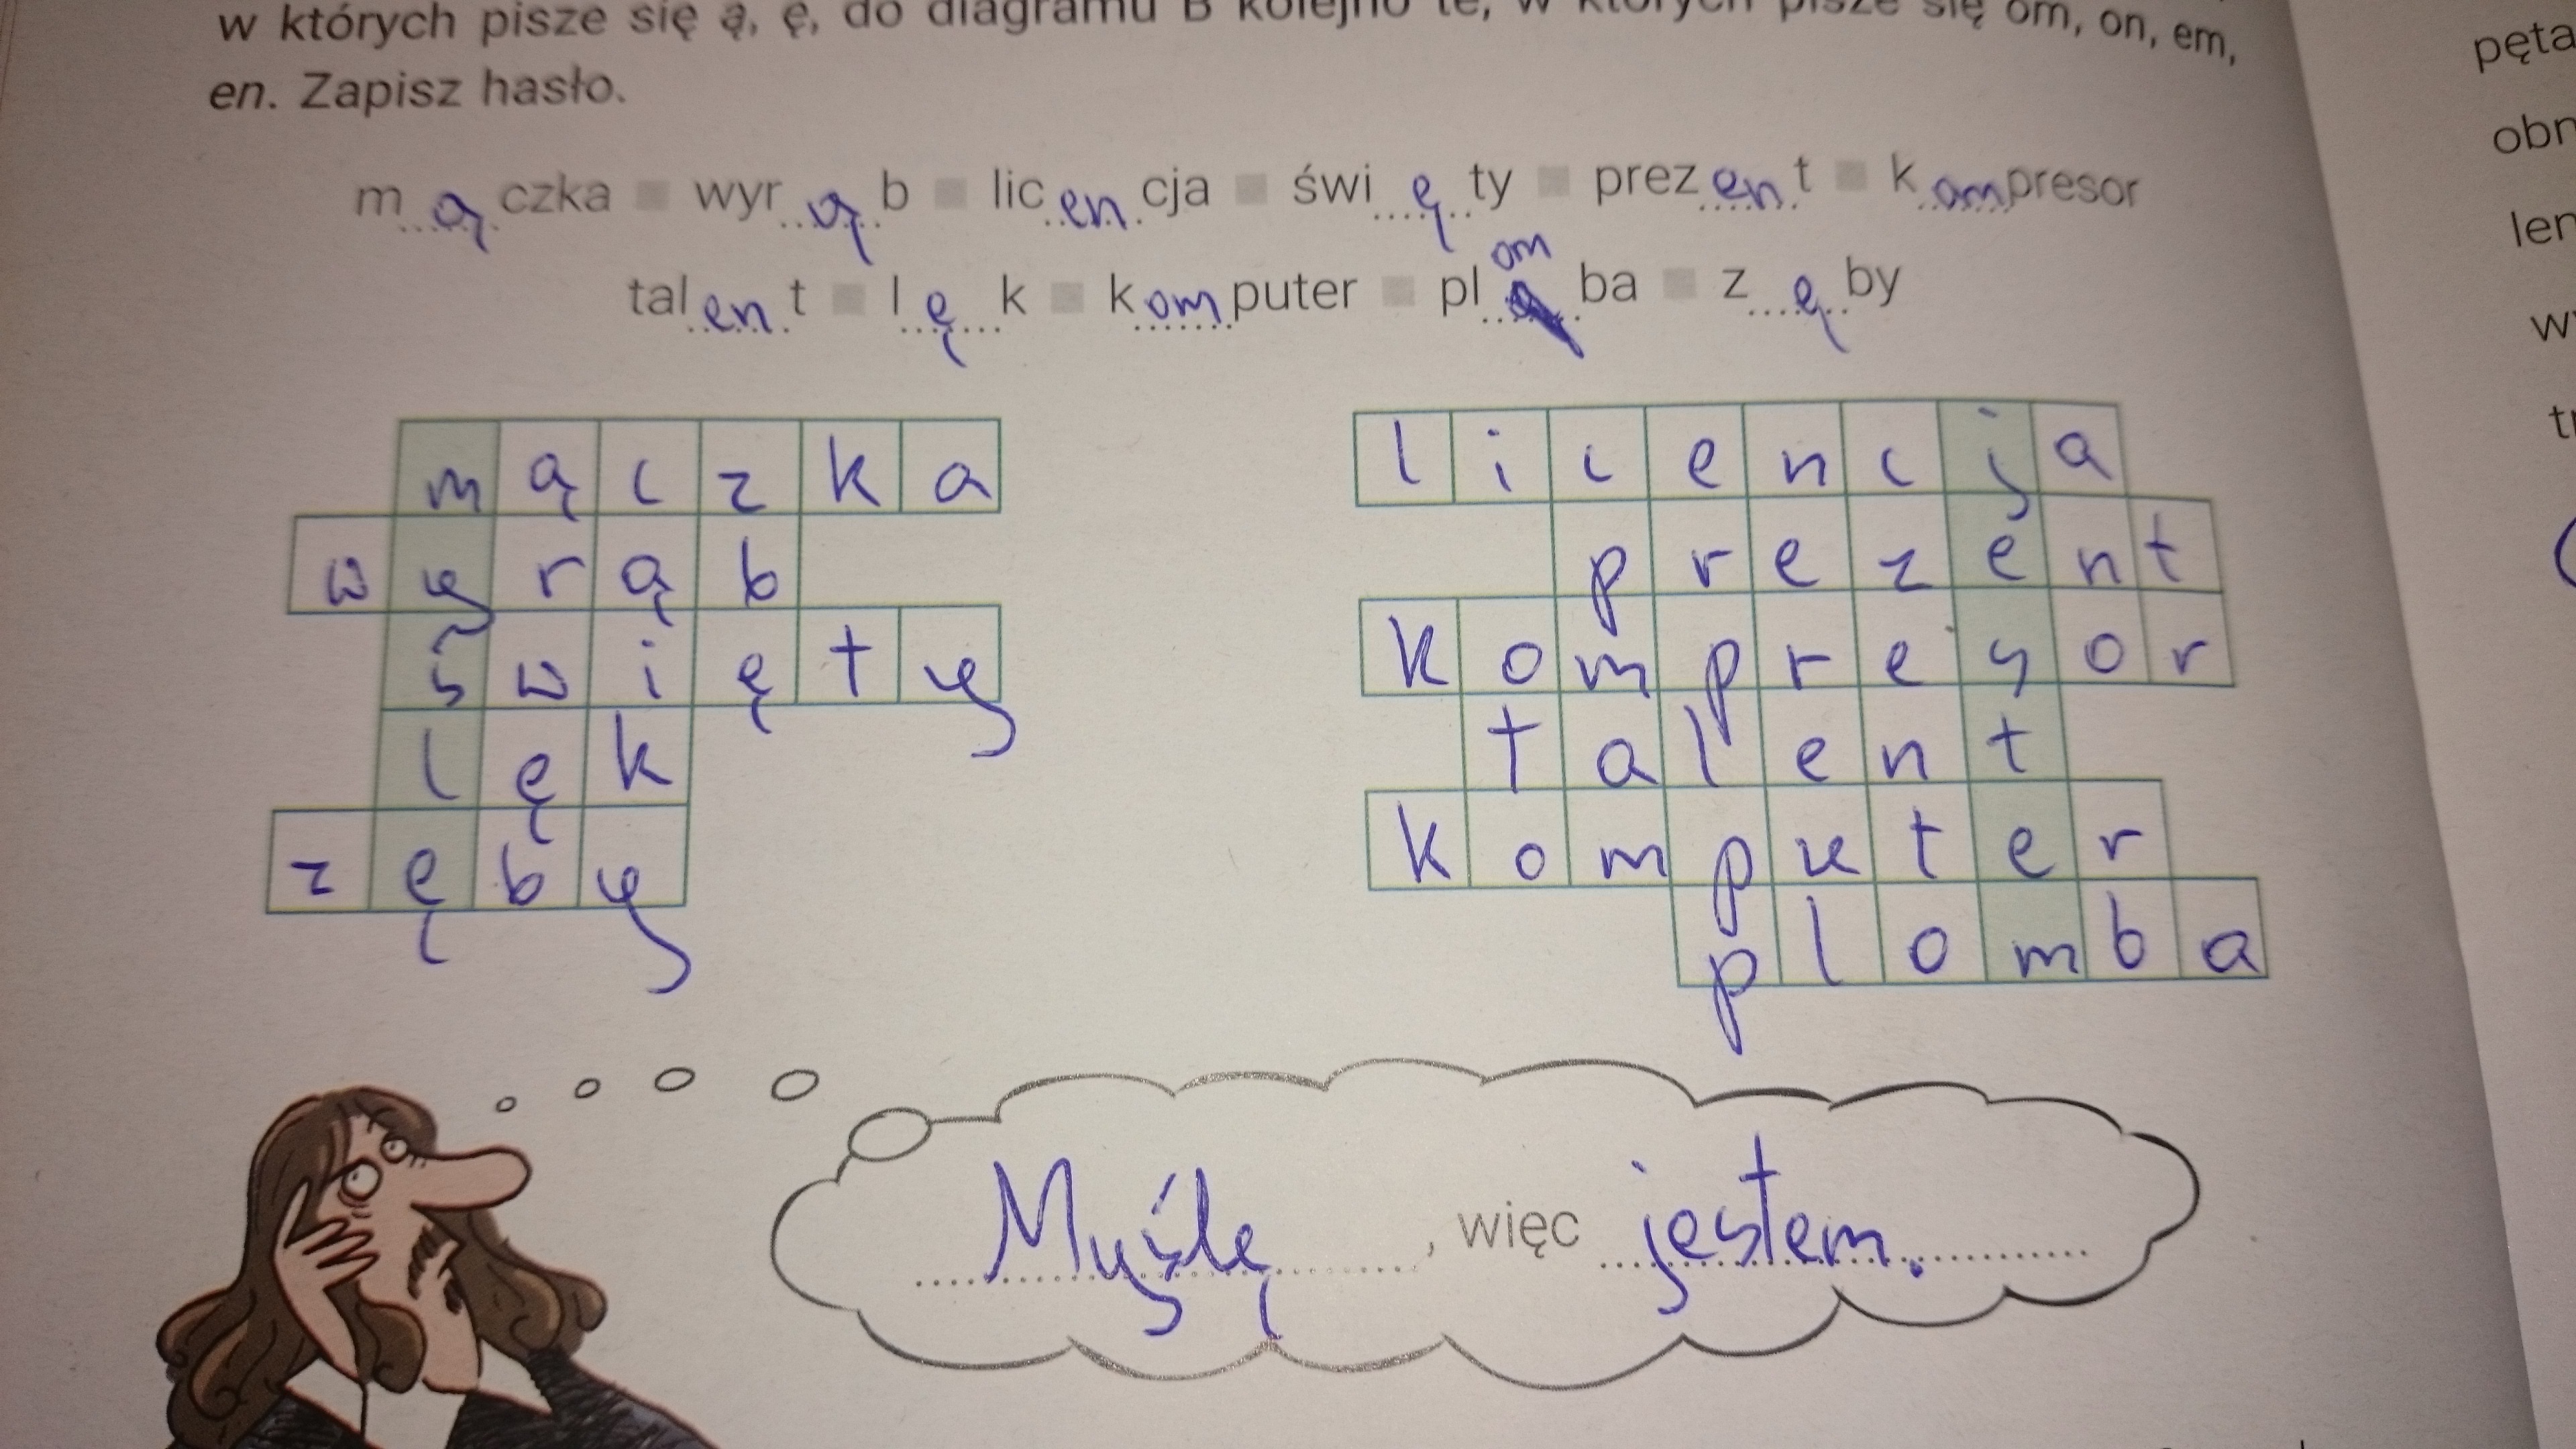 w których pisze się ą, ę, do diagramu B kolejno te, w których pisze się om, on, em,
en. Zapisz hasło.
mączka ■ wyrąb ■ licencja ■ święty ■ prezent ■ kompresor
om
talent ■ lęk ■ komputer ■ pląba ■ zęby
mączka
wyrąb
święty
lęk
zęby
licencja
prezent
kompresor
talent
komputer
plomba
Myślę, więc jestem.
pęta
obr
ler
w